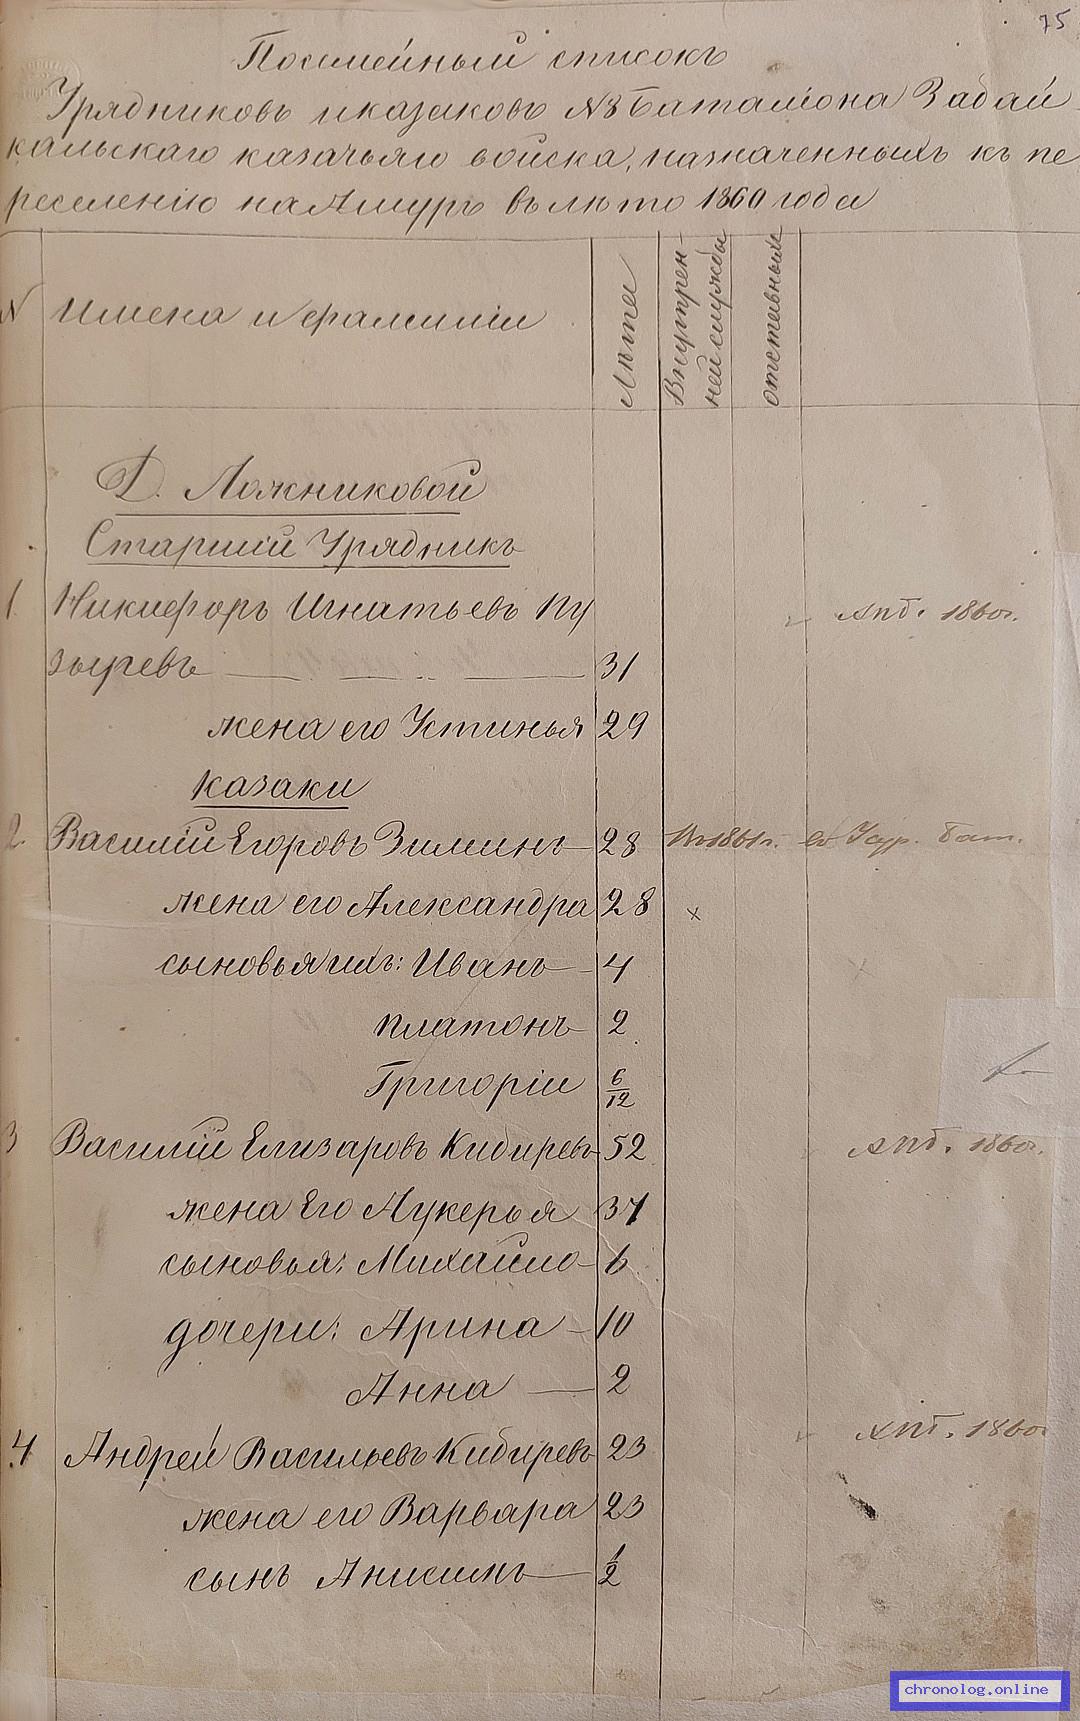 75
Посемейный списокъ
Урядниковъ и казаковъ №3 Баталiона Забай
кальскаго казачьяго войска, назначенныхъ къ пе
реселенiю на Амуръ въ лѣто 1860 года
N Имена и фамилiи
Лѣта
Внутрен-
ней службы
отставныхъ
Д. Ложниковой
Старшiй Урядникъ
1 Никифоръ Игнатьевъ Пу апб. 1860г.
зыревъ 31
жена его Устинья 29
Казаки
2 Василiй Егоровъ Зиминъ 28 1861г. въ Усур. бат.
жена его Александра 28 x
сыновья ихъ: Иванъ 4
Платонъ 2
Григорiи 6/12
3 Василiй Елизаровъ Кибиревъ 52 апб. 1860г.
жена Его Лукерья 37
сыновья: Михайло 6
дочери: Арина 10
Анна 2
4 Андрей Васильевъ Кибиревъ 23 1860
жена его Варвара 23
сынъ Анисимъ 1/2
chronolog.online